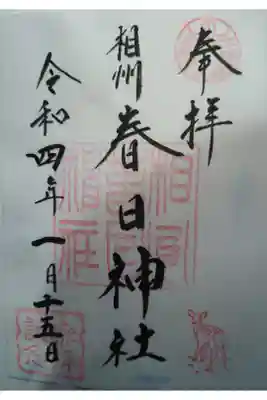 奉拝
相州
春日神社
令和四年一月十五日